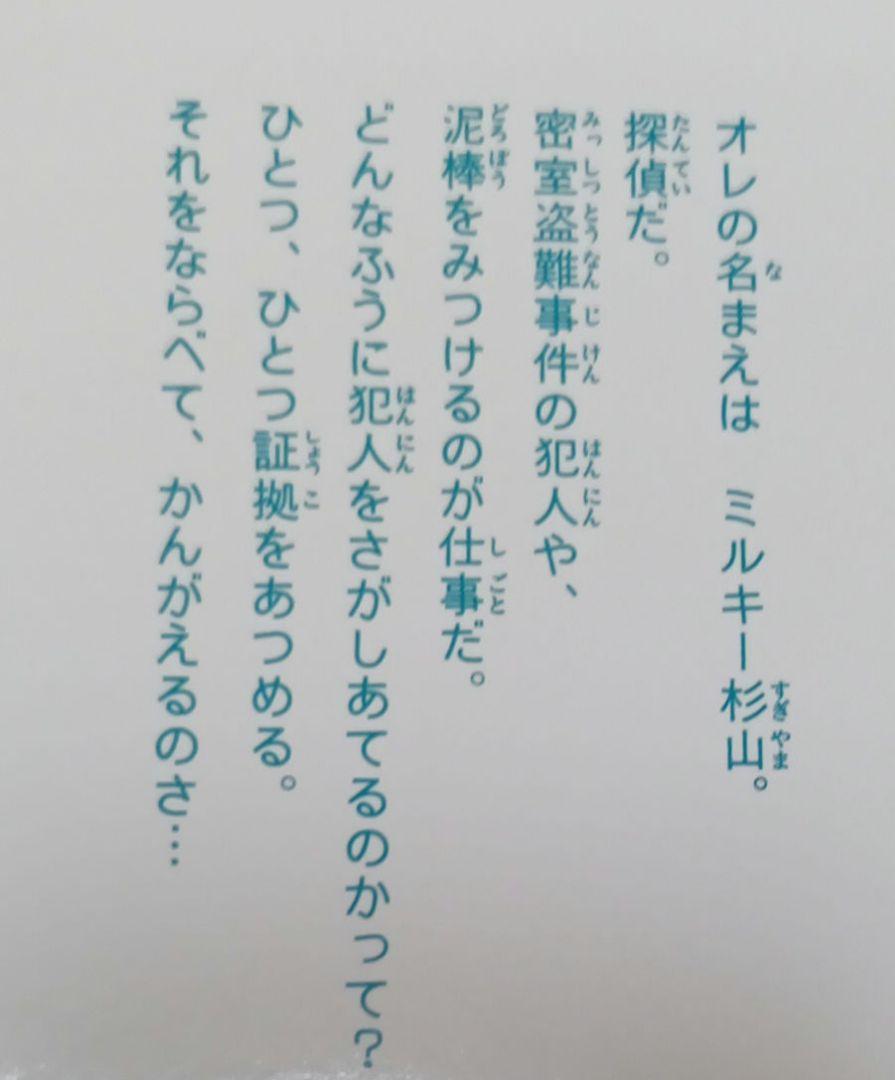 オレの名まえは　ミルキー杉山。
探偵だ。
密室盗難事件の犯人や、
泥棒をみつけるのが仕事だ。
どんなふうに犯人をさがしあてるのかって？
ひとつ、ひとつ証拠をあつめる。
それをならべて、かんがえるのさ…